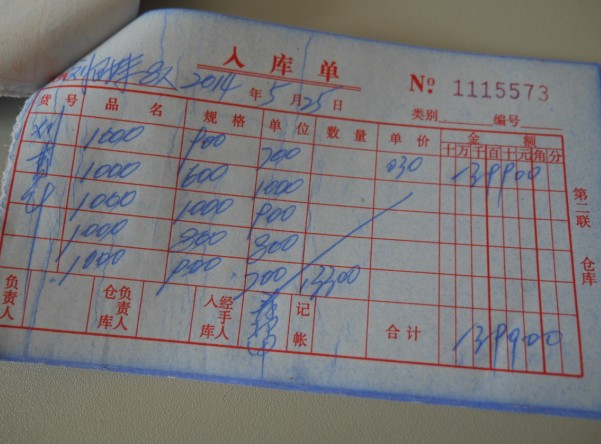 入库单
№ 1115573
2014年5月25日
类别 编号
货号 品名 规格 单位 数量 单价 金额
十万千百十元角分
1000 900 700 030
1000 600 1000
1000 1000 900
1000 800 800
1000 900 700 13300
负责人 仓库负责人 入库经手人 记帐 合计
第二联 仓库